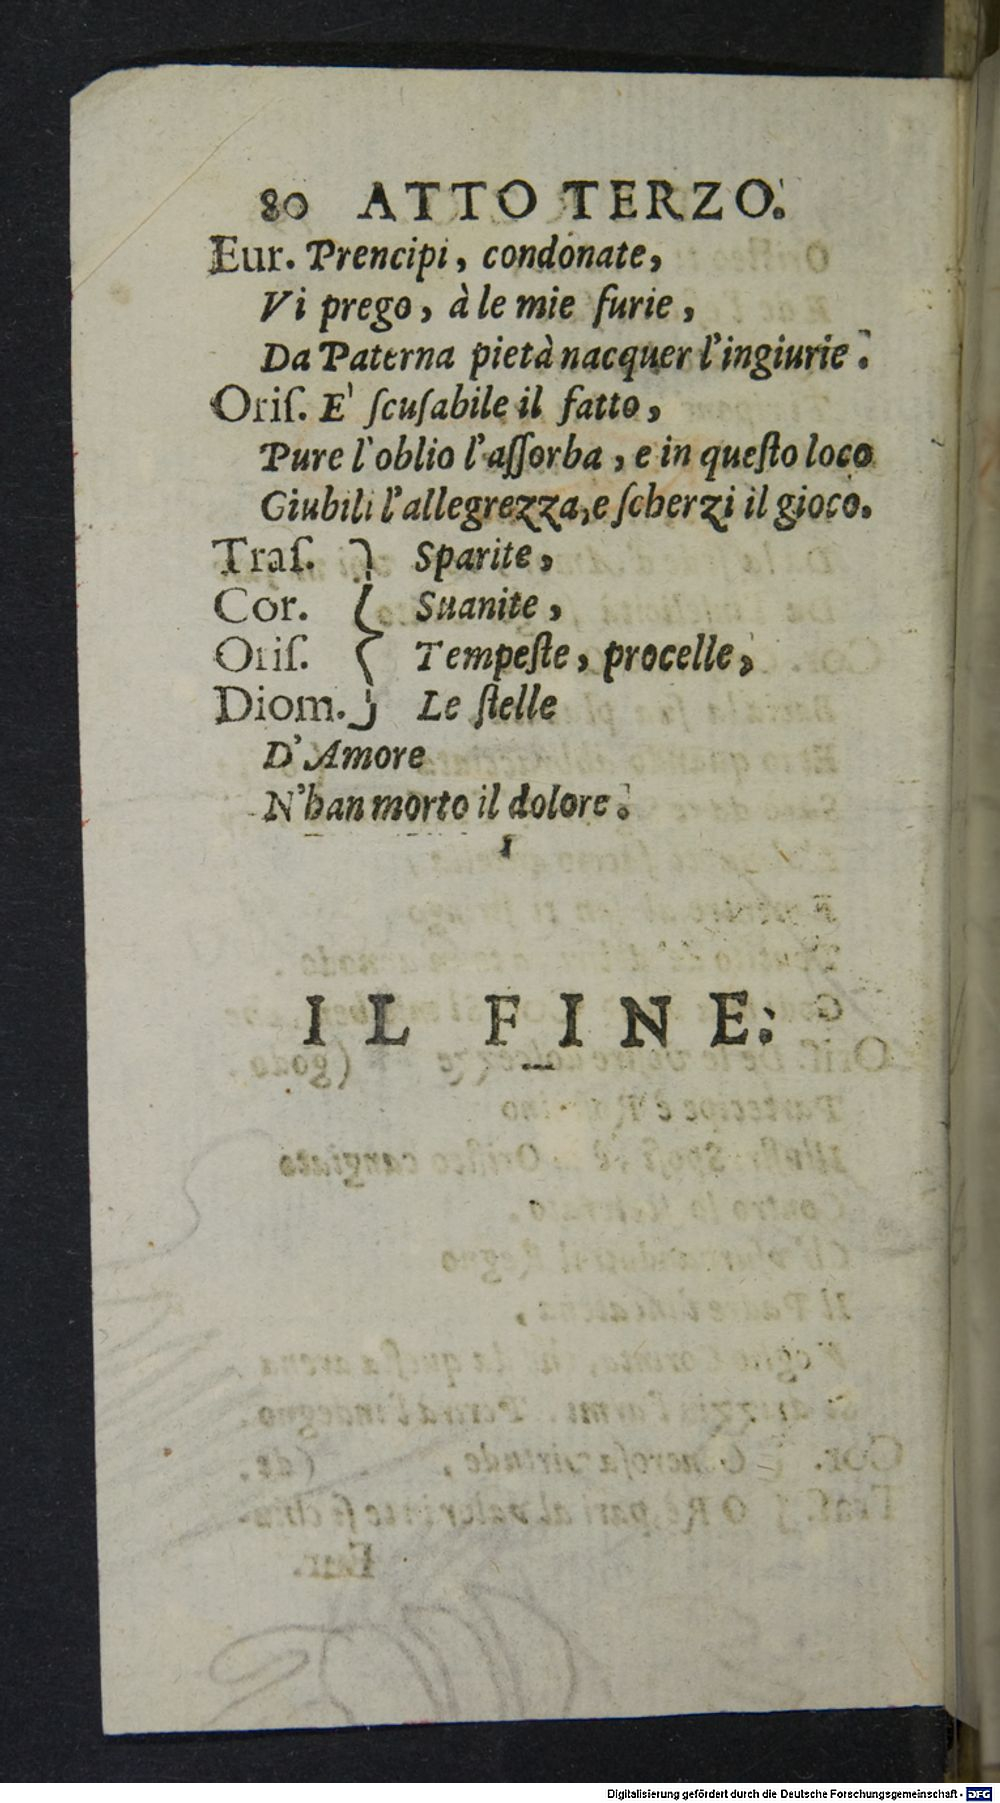 80 ATTO TERZO.
Eur. Prencipi, condonate,
Vi prego, à le mie furie,
Da Paterna pietà nacquer l'ingiurie.
Oriſ. E' ſcuſabile il fatto,
Pure l'oblio l'aſſorba, e in queſto loco
Giubili l'allegrezza, e ſcherzi il gioco.
Traſ. } Sparite,
Cor. { Suanite,
Oriſ. { Tempeſte, procelle,
Diom. } Le ſtelle
D'Amore
N'han morto il dolore.
IL FINE.
Digitalisierung gefördert durch die Deutsche Forschungsgemeinschaft - DFG